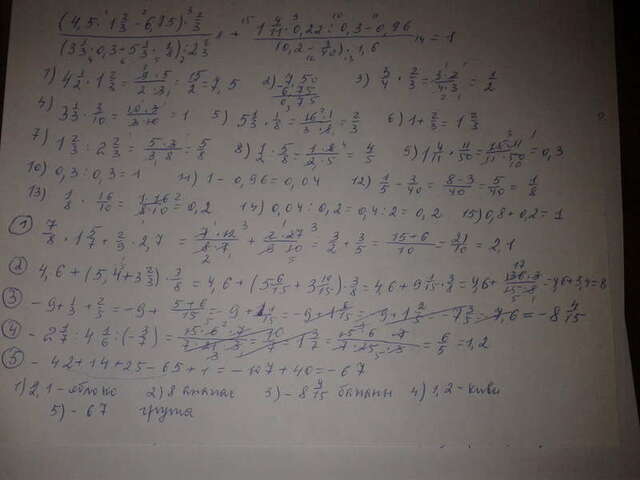 (4,5 · 1 2/3 − 6,75) · 2/3 / (3 1/3 · 0,3 + 5 1/3 · 1/8) : 2 2/3 + 1 4/11 · 0,22 : 0,3 − 0,96 / (0,2 − 3/40) · 1,6 = 1
1) 4 1/2 · 1 2/3 = 9·5/2·3 = 15/2 = 7,5 2) 7,50 6,75 0,75 3) 3/4 · 2/3 = 3·2/4·3 = 1/2
4) 3 1/3 · 3/10 = 10·3/3·10 = 1 5) 5 1/3 · 1/8 = 16·1/3·8 = 2/3 6) 1 + 2/3 = 1 2/3
7) 1 2/3 : 2 2/3 = 5·3/3·8 = 5/8 8) 1/2 : 5/8 = 1·8/2·5 = 4/5 9) 1 4/11 · 11/50 = 15·11/11·50 = 0,3
10) 0,3 : 0,3 = 1 11) 1 − 0,96 = 0,04 12) 1/5 − 3/40 = 8−3/40 = 5/40 = 1/8
13) 1/8 · 16/10 = 1·16/8·10 = 0,2 14) 0,04 : 0,2 = 0,4 : 2 = 0,2 15) 0,8 + 0,2 = 1
1 7/8 · 1 5/7 + 2/9 · 2,7 = 7·12/8·7 + 2·27/9·10 = 3/2 + 3/5 = 15+6/10 = 21/10 = 2,1
2 4,6 + (5,4 + 3 2/3) · 3/8 = 4,6 + (5 6/15 + 3 10/15) · 3/8 = 4,6 + 9 1/15 · 3/8 = 4,6 + 136·3/15·8 = 4,6 + 3,4 = 8
3 −9 + 1/3 + 2/5 = −9 + 5+6/15 = −9 + 11/15 = = −8 4/15
4 −2 1/7 : 4 1/6 · (−3/7) = = 6/5 = 1,2
5 −42 + 14 + 25 − 65 + 1 = −127 + 40 = −67
1) 2,1 − яблоко 2) 8 ананас 3) −8 4/15 бананы 4) 1,2 − киви
5) −67 груша